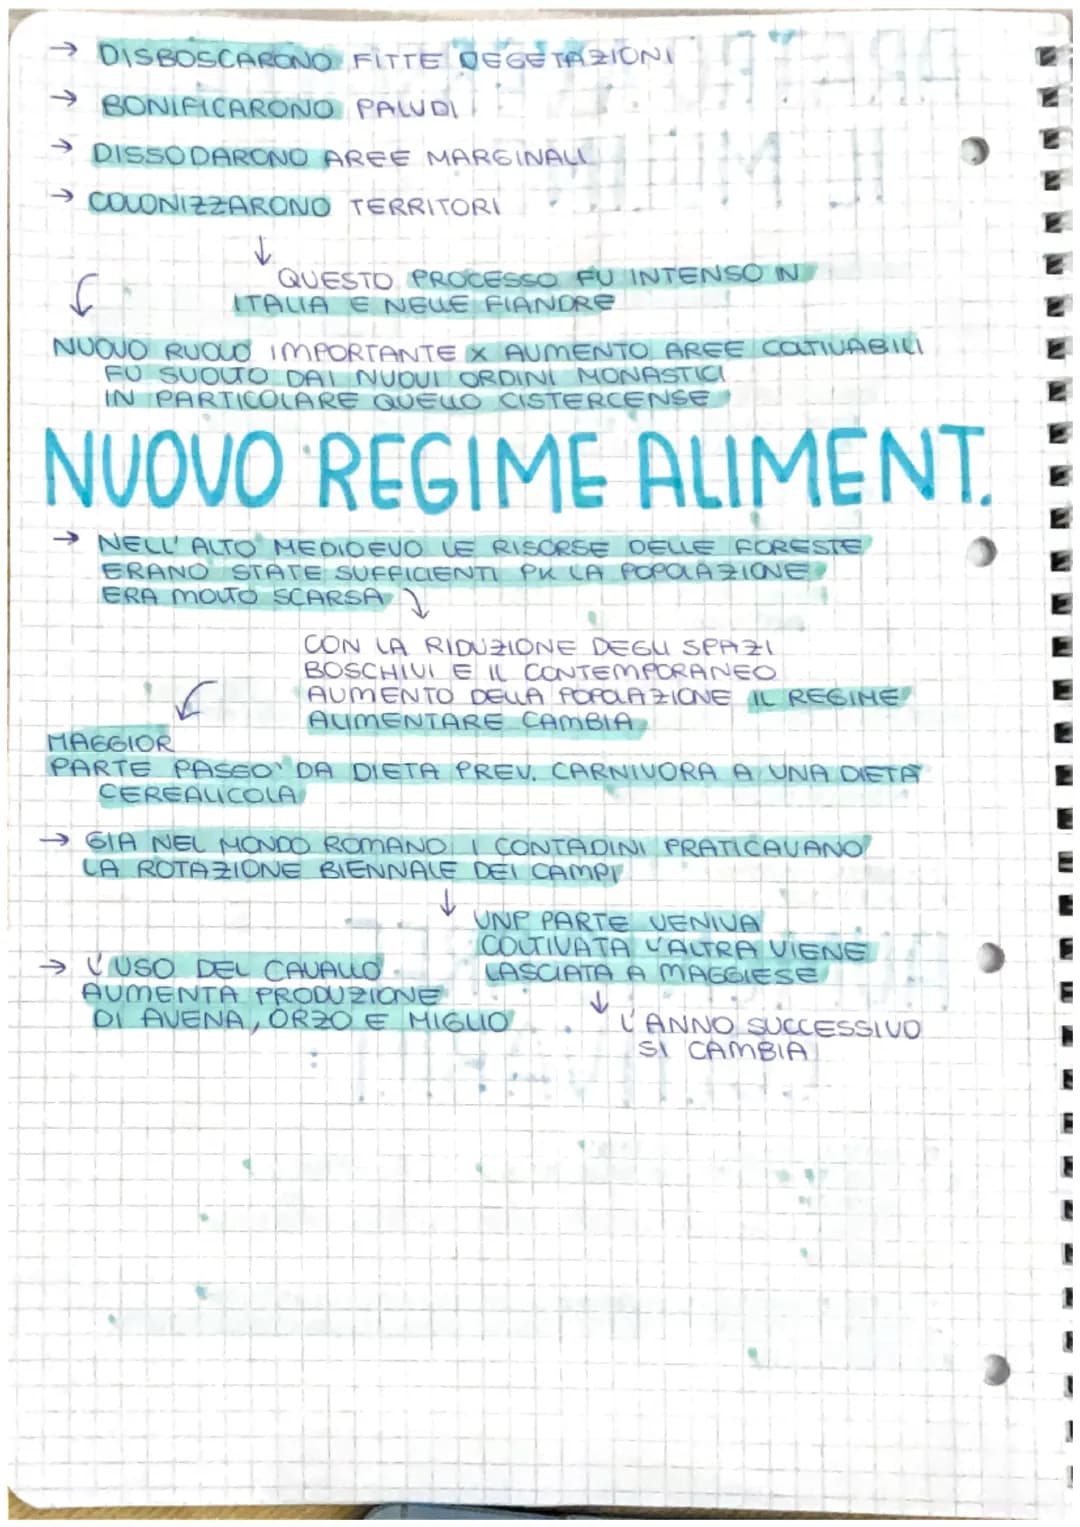 → DISBOSCARONO FITTE VEGETAZIONI
→ BONIFICARONO PALUDI
→ DISSODARONO AREE MARGINALI
→ COLONIZZARONO TERRITORI
↓
QUESTO PROCESSO FU INTENSO IN
ITALIA E NELLE FIANDRE
NUOVO RUOLO IMPORTANTE X AUMENTO AREE COLTIVABILI
FU SVOLTO DAI NUOVI ORDINI MONASTICI
IN PARTICOLARE QUELLO CISTERCENSE
NUOVO REGIME ALIMENT.
→ NELL'ALTO MEDIOEVO LE RISORSE DELLE FORESTE
ERANO STATE SUFFICIENTI PK LA POPOLAZIONE
ERA MOLTO SCARSA
CON LA RIDUZIONE DEGLI SPAZI
BOSCHIVI E IL CONTEMPORANEO
AUMENTO DELLA POPOLAZIONE IL REGIME
ALIMENTARE CAMBIA
MAGGIOR
PARTE PASSO' DA DIETA PREV. CARNIVORA A UNA DIETA
CEREALICOLA
→ GIA NEL MONDO ROMANO I CONTADINI PRATICAVANO
LA ROTAZIONE BIENNALE DEI CAMPI
↓
UNA PARTE VENIVA
COLTIVATA L'ALTRA VIENE
LASCIATA A MAGGIESE
↓
L'ANNO SUCCESSIVO
SI CAMBIA
→ L'USO DEL CAVALLO
AUMENTA PRODUZIONE
DI AVENA, ORZO E MIGLIO